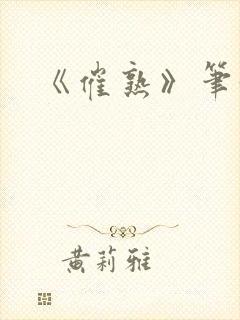 《催熟》筆
黄莉雅